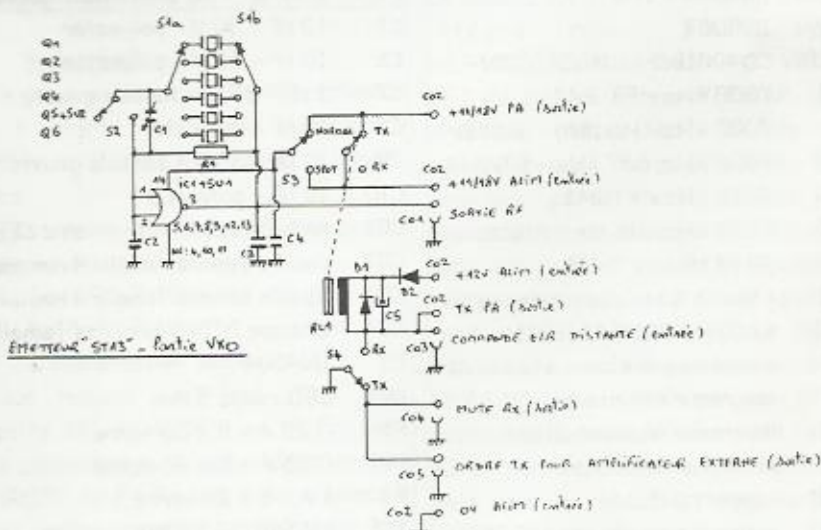 S1a S1b
Q1
Q2
Q3
Q4
Q5+SUR
Q6
S2
C1
R1
14
IC1 4501
1
2
3
5,6,7,8,9,12,13
C2
C3
C4
NORMAL
TX
S3
SPOT
RX
CO2
+11/18V PA (sortie)
CO2
+11/18V ALIM (entrée)
CO1
SORTIE RF
D1
CO2
+12V ALIM (entrée)
D2
C5
CO2
TX PA (sortie)
RL1
CO3
COMMANDE E/R DISTANTE (entrée)
RX
S4
TX
EMETTEUR "STAS" - Partie VXO
MUTE RX (sortie)
CO4
ORDRE TX POUR AMPLIFICATEUR EXTERNE (sortie)
CO5
CO2
0V ALIM (entrée)